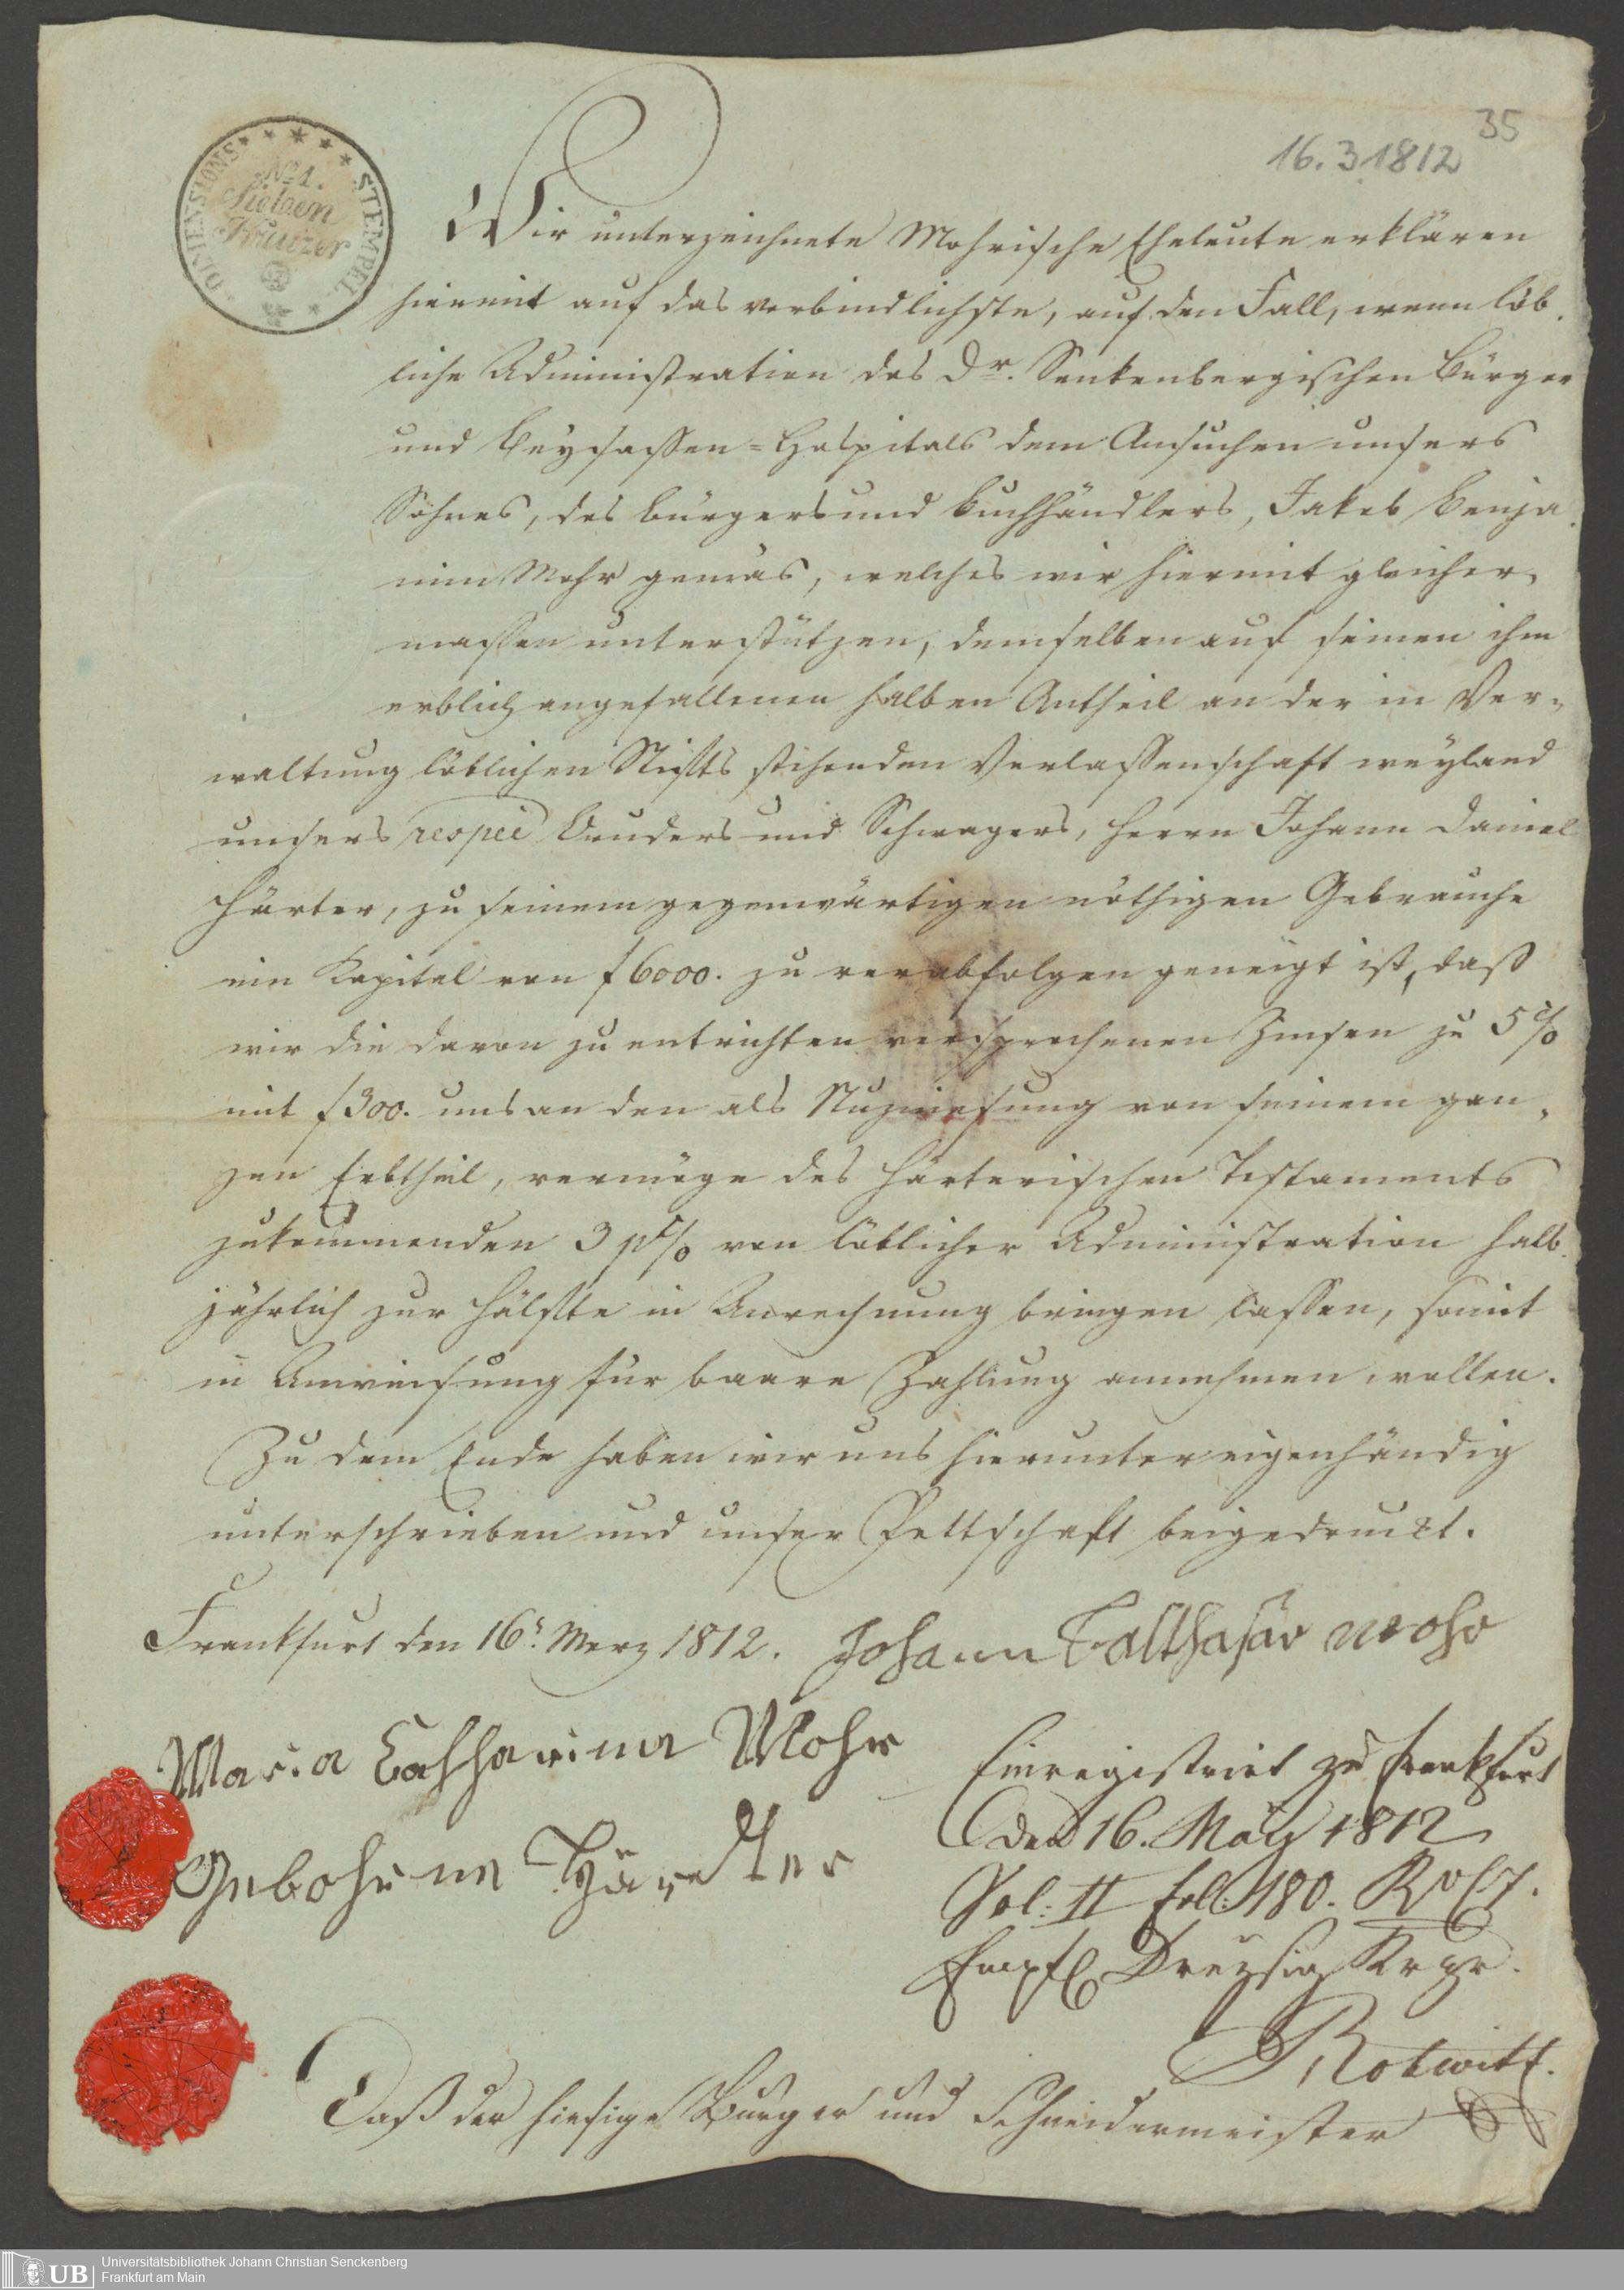 35
16.3.1812
DIMENSIONS STEMPEL
No 1.
Sieben
Kreuzer
Wir unterzeichnete Mohrische Eheleute erklären
hiermit auf das verbindlichste, auf den Fall, wenn löb-
liche Administration des Dr. Senkenbergischen Bürger
und Beysassen-Hospitals dem Ansuchen unsers
Sohnes, des Bürgers und Buchhändlers, Jakob Benja-
min Mohr gemäs, welches wir hiermit gleicher-
massen unterstützen, demselben auf seinen ihm
erblich angefallenen halben Antheil an der in Ver-
waltung löblichen Stifts stehenden Verlassenschaft weyland
unsers respee Bruders und Schwagers, Herrn Johann Daniel
Härter, zu seinem gegenwärtigen nöthigen Gebrauche
ein Kapital von f 6000. zu verabfolgen geneigt ist, daß
wir die davon zu entrichten versprochenen Zinsen zu 5 %
mit f 300. uns an den als Nuzniesung von seinem gan-
zen Erbtheil, vermöge des Härterischen Testaments
zukommenden 3 p% von löblicher Administration halb-
jährlich zur Hälfte in Anrechnung bringen lassen, somit
in Anweisung für baare Zahlung annehmen wollen.
Zu dem Ende haben wir uns hierunter eigenhändig
unterschrieben und unser Pettschaft beigedruckt.
Frankfurt den 16s. Merz 1812. Johann Balthasar Mohr
Maria Catharina Mohr
Gebohrne Härdter
Einregistrirt zu Frankfurt
den 16. März 1812
Vol: II fol: 180. Ro C 7.
Empf. Dreyßig Krzr.
Rotwitt.
Daß der hiesige Burger und Schneidermeister
UB
Universitätsbibliothek Johann Christian Senckenberg
Frankfurt am Main